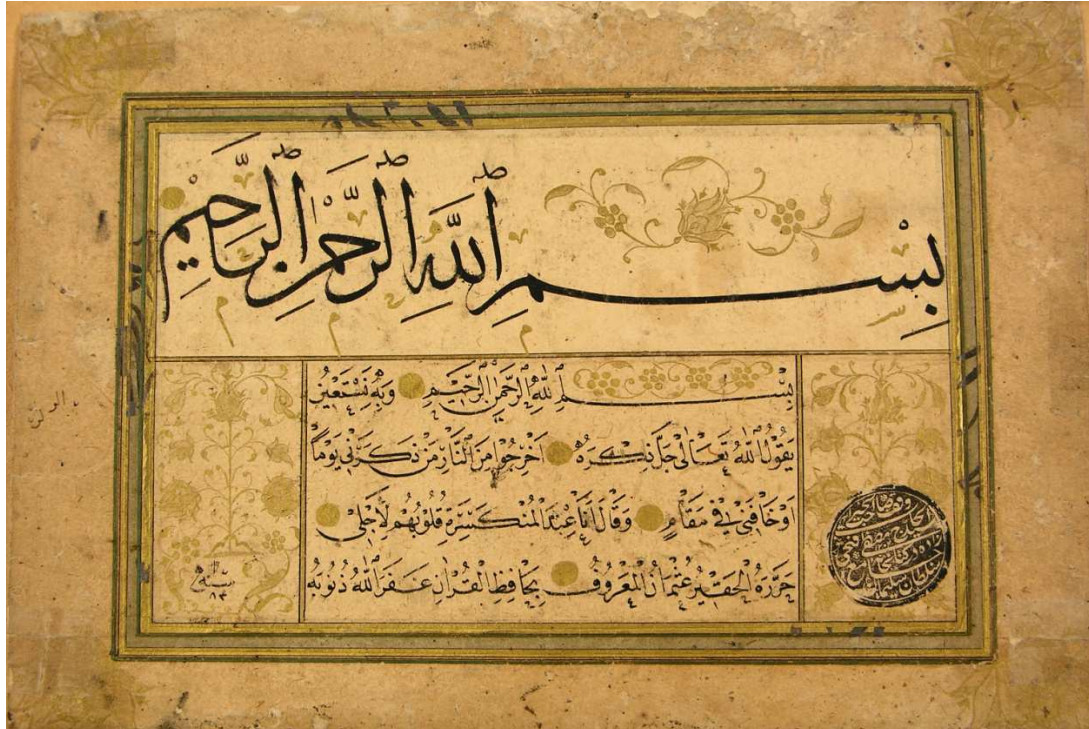 بِسْمِ اللّٰهِ الرَّحْمٰنِ الرَّحِيْمِ
بِسْمِ اللّٰهِ الرَّحْمٰنِ الرَّحِيْمِ وَبِهٖ نَسْتَعِيْنُ
يَقُوْلُ اللّٰهُ تَعَالٰى جَلَّ ذِكْرُهٗ اَخْرِجُوْا مِنَ النَّارِ مَنْ ذَكَرَنٖى يَوْمًا
اَوْ خَافَنٖى فٖى مَقَامٍ وَقَالَ اَنَا عِنْدَ الْمُنْكَسِرَةِ قُلُوْبُهُمْ لِاَجْلٖى
حَرَّرَهُ الْحَقِيْرُ عُثْمَانُ الْمَعْرُوْفُ بِحَافِظِ الْقُرْاٰنِ غَفَرَ اللّٰهُ ذُنُوْبَهٗ
سنة